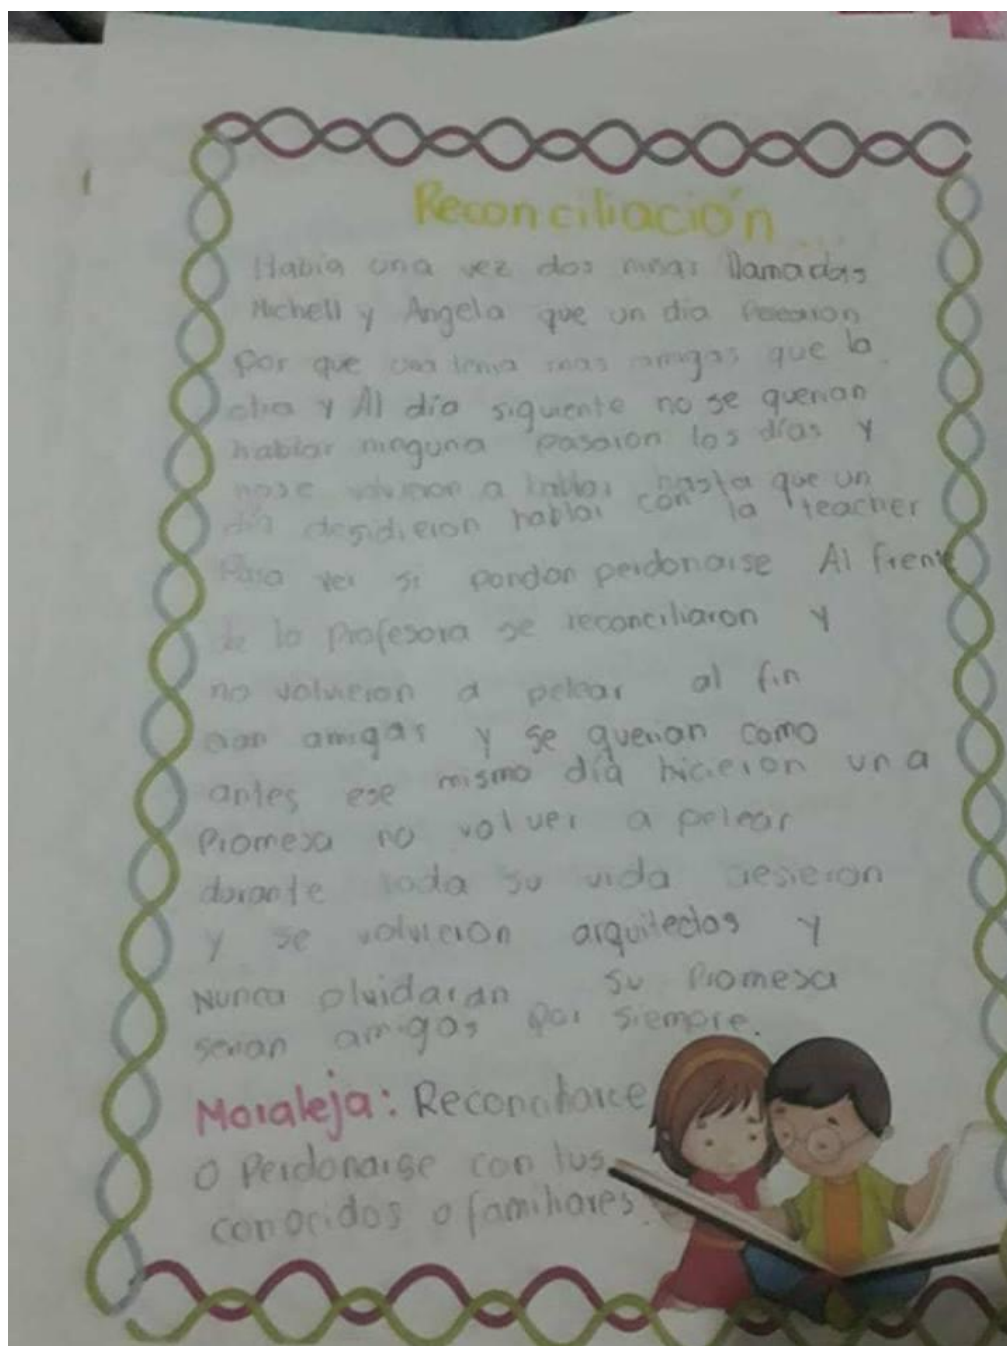 Reconciliación...
Habia una vez dos niñas llamadas
Michell y Angela que un dia Pelearon
por que una tenia mas amigas que la
otra y Al día siguiente no se querian
hablar ninguna pasaron los días y
nose volvieron a hablar hasta que un
día desidieron hablar con la teacher
Para ver si pondan perdonarse Al frente
de la Profesora se reconciliaron y
no volvieron a pelear al fin
eran amigas y se querian como
antes ese mismo día hicieron una
Promesa no volver a pelear
durante toda su vida
y se volvieron arquitectos y
Nunca olvidaran su Promesa
seran amigos por siempre.
Moraleja: Reconciliarce
o Perdonarse con tus
conocidos o familiares.